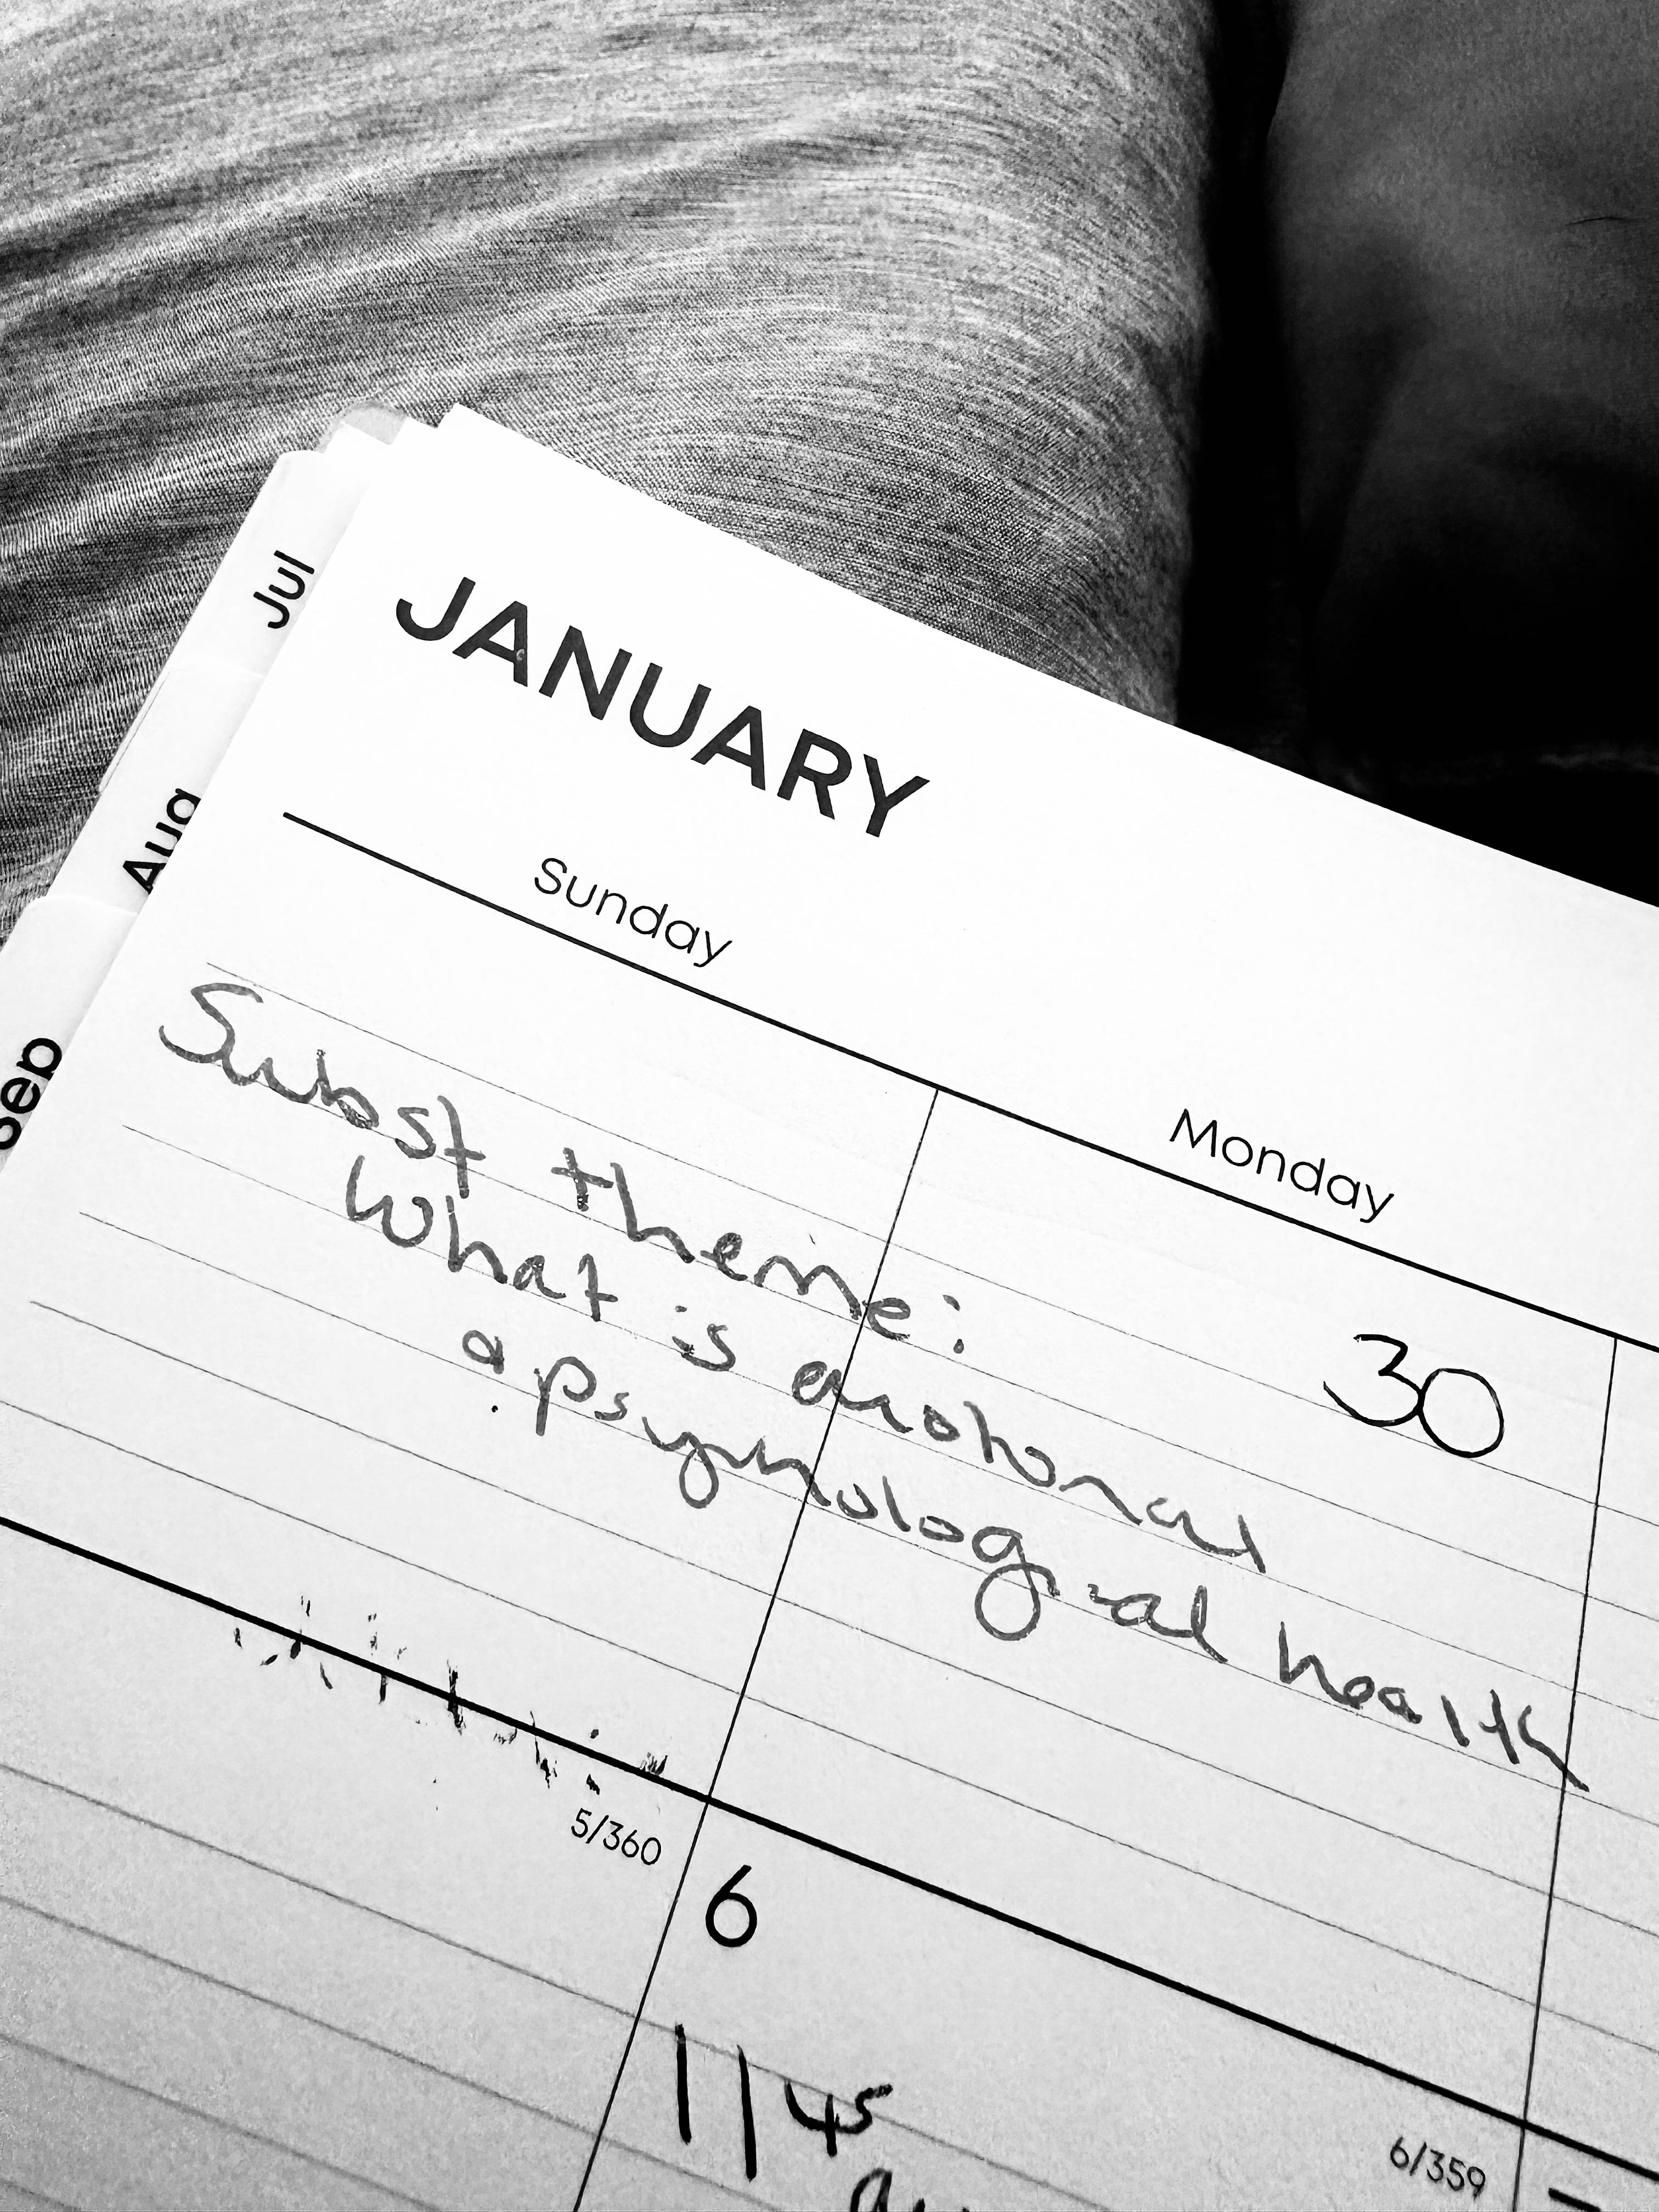 Jul
Aug
Sep
JANUARY
Sunday
Monday
Subst theme:
What is emotional
a psychological health
30
5/360
6
1145
6/359